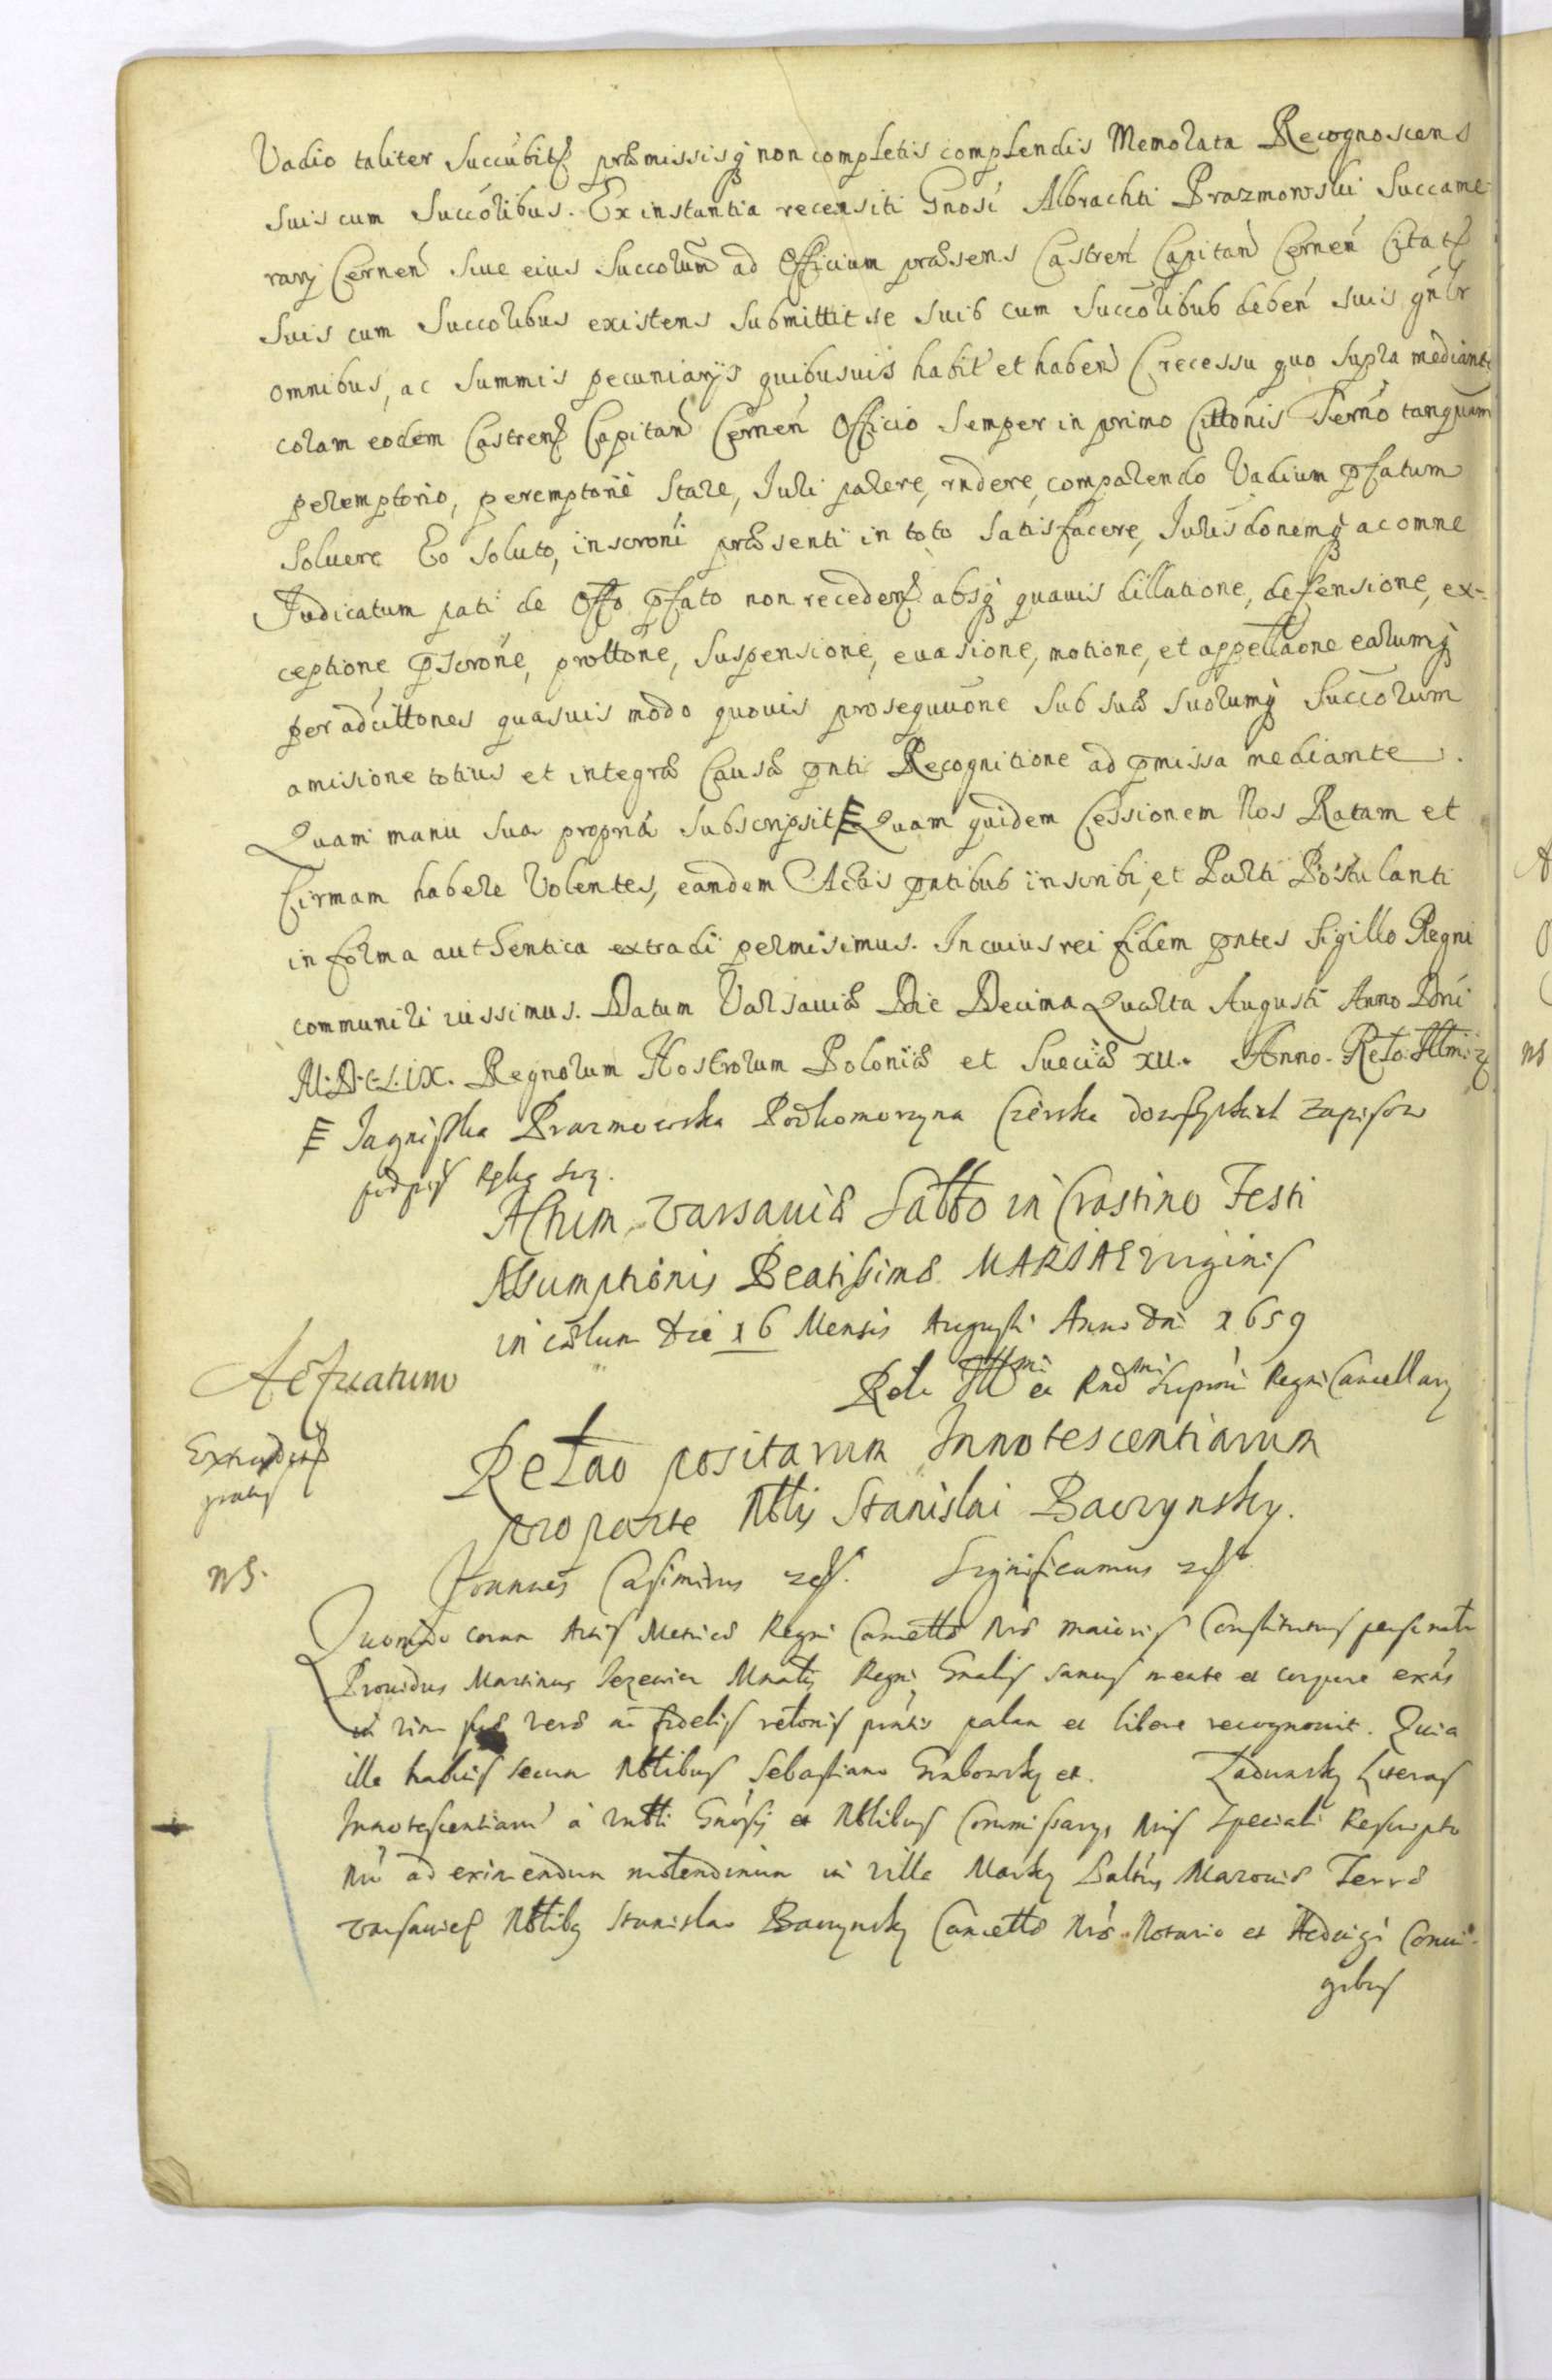 Vadio taliter Succubitę præmissisq́ non completis complendis Memorata Recognoscens
suis cum Succoribus. Ex instantia recensiti Gnosi Albrachti Prazmowski Succame-
rarij Cernen̄ siue eius Succorum̃ ad Officium præsens Castren̄ Capitan̄ Cernen̄ Citatę
suis cum Succoribus existens submittit se suis cum Succoribus deben̄ suis gńlr
omnibus, ac Summis pecuniarijs quibusuis habit et haben̄ Crecessu quo supra mediante
coram eodem Castrenę Capitan̄ Cernen̄ Officio semper in primo Cittonis Termo tanquam
peremptorio, peremptorie stare, Juri parere, rndere, comparendo Vadium pfatum
soluere Eo soluto, inscroni præsenti in toto satisfacere, Jurisdonemq́ ac omne
Judicatum pati de Offo pfato non recedenę absq́ quauis dillatione, defensione, ex-
ceptione pscrone, prottone, suspensione, euasione, motione, et appellaone earumq́
per adcittones quasuis modo quouis prosequuone sub suæ suorumq́ Succorum
amisione totius et integræ Causæ pnti Recognitione ad pmissa mediante.
Quam manu sua propria subscripsit Quam quidem Cessionem Nos Ratam et
firmam habere Volentes, eandem Actis pntibus inscribi, et Parti Postulanti
in forma authentica extradi permisimus. In cuius rei fidem pntes sigillo Regni
communiri iussimus. Datum Varsauiæ Die Decima Quarta Augusti Anno Dni
M.D.C.L.IX. Regnorum Nostrorum Poloniæ et Sueciæ XII. Anno. Relo. Illmi
Jagniszka Prazmowska Podkomorzyna Czerska do wszytkich zapisow
podpis ręką swą.
Actum Varsauiæ Sabbo in Crastino Festi
Assumptionis Beatissimæ MARIAE Virginis
in cœlum Die 16 Mensis Augusti Anno Dni 1659
Actuatum
Rela Illmi et Rndmi Supmi Regni Cancellarij
Extraditę
gratis
Relao positarum Innotescentiarum
pro parte Nblis Stanislai Baczynsky.
NS.
Joannes Casimirus Significamus
Quomodo coram Actis Metrices Regni Cancellæ Nræ maioris Constitutus personalr
Prouidus Martinus Mnalis Regni Gnalis sanus mente et corpore exns
in vim suæ veræ ac fidelis relonis pntis palam et libere recognouit. Quia
ille habitis secum Nblibus Sebastiano Grabowsky et. Zadunsky Literas
Innotescentiarum à Gnosis et Nblibus Commissarijs Nris speciali Rescripto
Nro ad eximendum molendinum in villa Marky Mazouiæ Terræ
Varsauien Nblibus Stanislao Baczynsky Cancellæ Nræ Notario et Hedwigi Coniu-
gibus